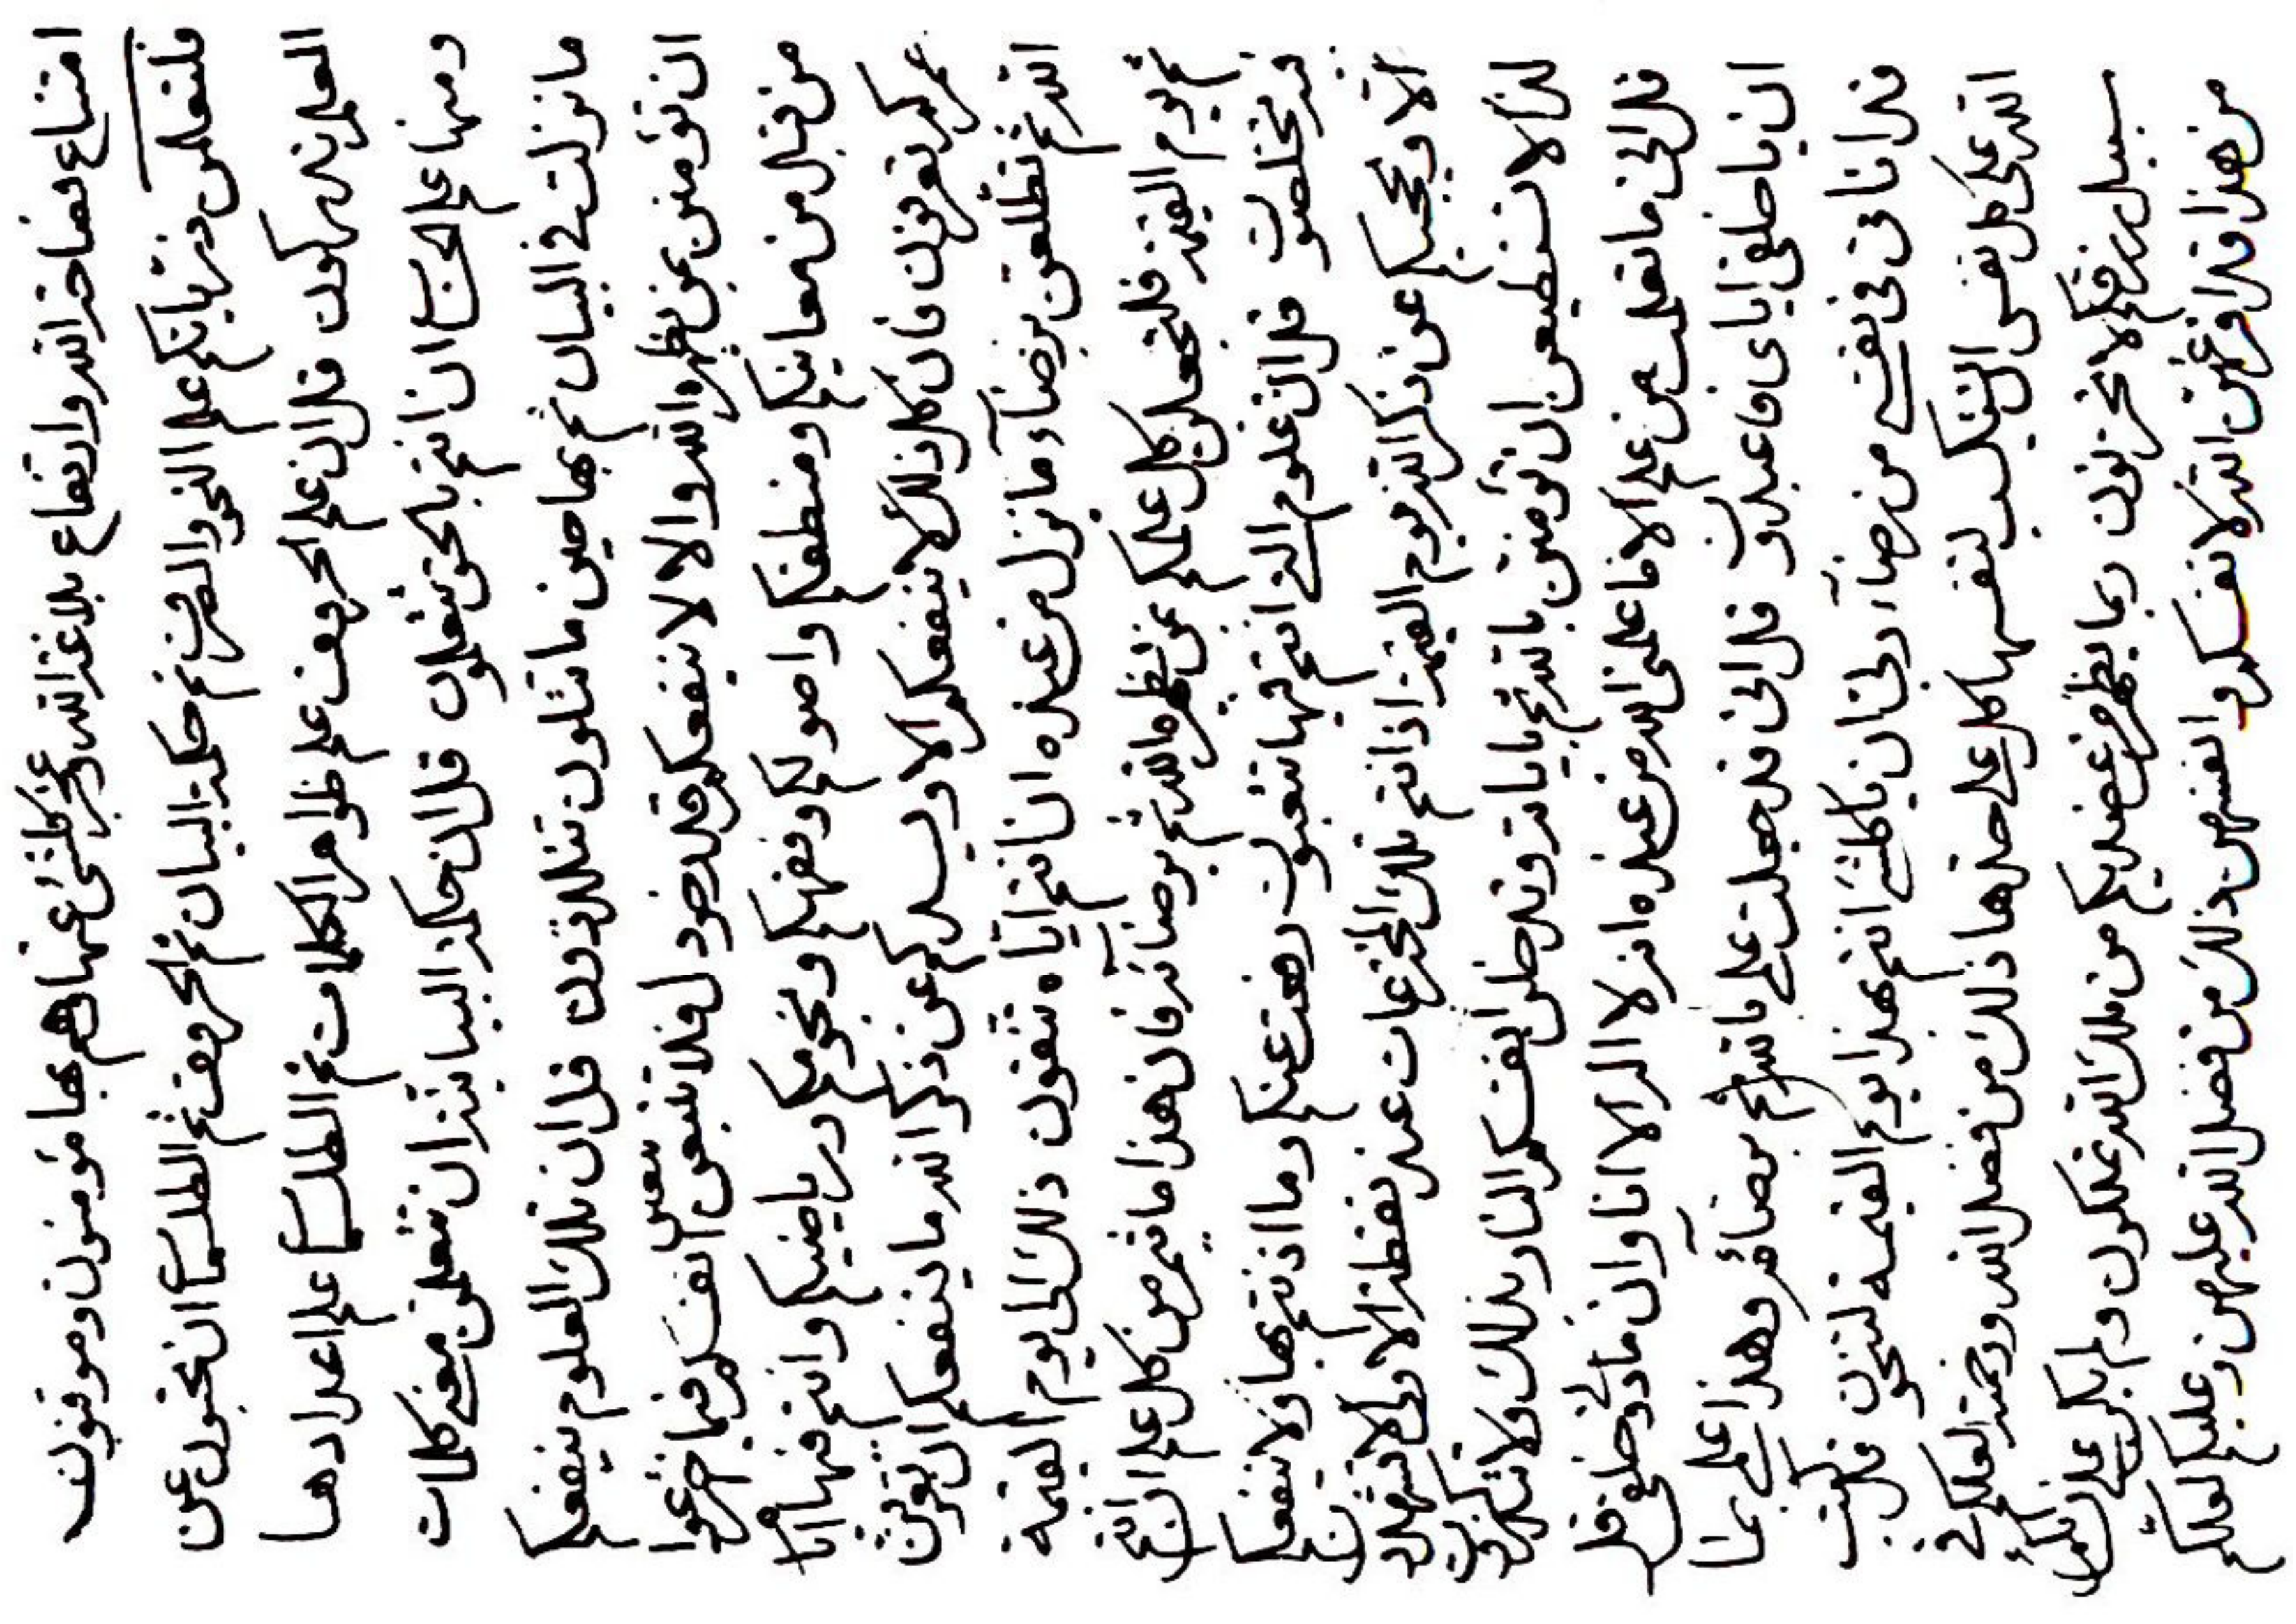 امتناع فصاحة الله وارتفاع بلاغة الله وعجز كلشئ عنها وهم بها مؤمنون وموقنون
فلتعلمن ذرياتكم علم النحو والصرف ثم حكمة البيان ثم الحروف ثم الطلسم ان تحبون عن
العلم تدركون قل ان علم الحروف علم ظواهر الكلمات ثم الطلسم علم اعدادها
ومنها علم ان انتم بالحق تتعلمون قل ان حكمة البيانية ان تتعلمن معنى كلمات
ما نزلت في البيان ثم بها حين ما تتلون تتلذذون قل ان تلك العلوم ينفعكم
ان تؤمنن بمن يظهره الله والا لا ينفعكم قدر خردل فلا تتبعن انفسكم فيما اخترعوا
من قبل من معانيكم ومنطقكم واصولكم وفقهكم ونحومكم ورياضيكم وانتم فيها
عمركم تعرفون فان كل ذلك لا ينفعكم الا ويسدكم عن ذكر الله ما ينفعكم ان تقوين
الله ثم تطلعن برضاء وما نزل من عنده ان انتم اياه تتقون ذلك الى يوم القيمة
ثم يوم القيمة فلتجعلن كل علمكم بمن يظهره الله ثم برضائه فان هذا ما يثمر من كل علم ان انتم
فيه تخلصون قل ان علوم التي انتم فيها تتعبون رفعت عنكم وما اذنتم بها ولا ينفعكم
الا ويحجبكم عن ذكر الله يوم القيمة اذ انتم تلك المخترعات عند نقطة الاولى لا تشهدون
لذا لا تستطيعن ان تؤمنن بالله ثم باياته وتدخلن انفسكم النار بذلك ولا تتذكرون
قل انى ما تعلمت من علم الا فاعلمنى الله من عنده انه لا اله الا انا وان ما دونى خلقى قل
ان يا خلقى اياى فاعبدون قل انى قد جعلت علم بالله ثم برضائه وهذا علم بما
قدرانا فى نفسى من رضاء ربى ان يا كلشئ انتم بهذا يوم القيمة لتنجون قل كتب
الله على كل نفس ان تكسب لنفسها كل على حدها ذلك من فضل الله ورحمته لعلكم فى
سبيل رزقكم لا تحزنون ربما يظهر من عضديكم من ملك الله تملكون ولم يكن على ان تكسبن
من هذا قد اذن الله لا نفسكم وانفسهن ذلك من فضل الله عليهن وعليكم لعلكم